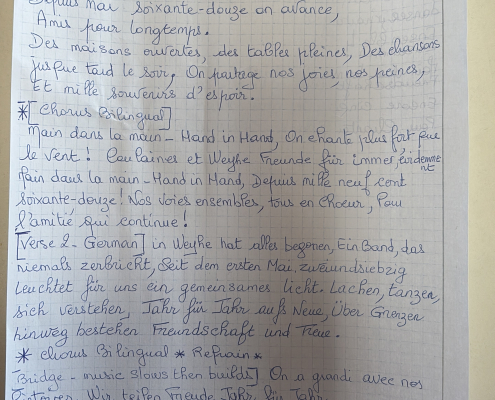 Depuis Mai soixante-douze on avance,
Amis pour longtemps.
Des maisons ouvertes, des tables pleines, Des chansons
jusque tard le soir, On partage nos joies, nos peines,
Et mille souvenirs d'espoir.
*[Chorus Bilingual]
Main dans la main - Hand in Hand, On chante plus fort que
le vent! Coulaines et Weyhe Freunde für immer, évidemment
Main dans la main - Hand in Hand, Depuis mille neuf cent
soixante-douze! Nos voies ensembles, tous en choeur, Pour
l'amitié qui continue!
[Verse 2 - German] in Weyhe hat alles begonnen, Ein Band, das
niemals zerbricht, Seit dem ersten Mai, zweiundsiebzig
Leuchtet für uns ein gemeinsames licht. Lachen, tanzen,
sich verstehen, Jahr für Jahr aufs Neue, Über Grenzen
hinweg bestehen Freundschaft und Treue.
* Chorus Bilingual * Refrain *
Bridge - music slows then builds] On a grandi avec nos
Wir teilen Freude, Jahr für Jahr